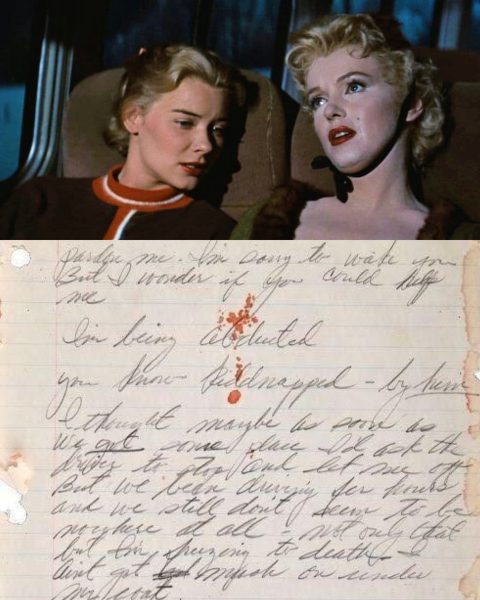 pardon me. I'm sorry to wake you
But I wonder if you could help
me
I'm being abducted
you know kiddnapped - by him
I thought maybe as soon as
we got some place I'd ask the
driver to stop and let me off
But we been driving for hours
and we still dont seem to be
nowhere at all - not only that
but I'm freezing to death - I
aint got much on under
my coat.